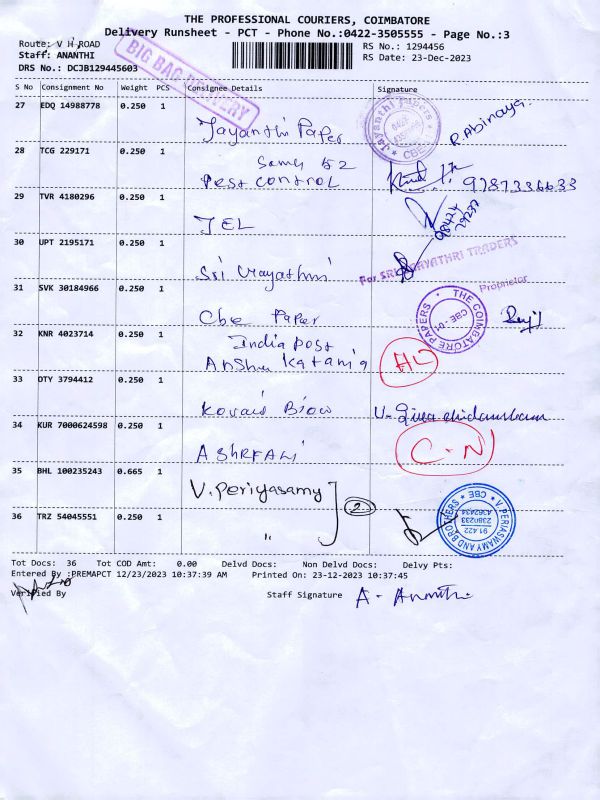 THE PROFESSIONAL COURIERS, COIMBATORE
Delivery Runsheet - PCT - Phone No.:0422-3505555 - Page No.:3
Route: V H ROAD
RS No.: 1294456
Staff: ANANTHI
RS Date: 23-Dec-2023
DRS No.: DCJB129445603
BIG BAG DELIVERY
S No Consignment No Weight PCS Consignee Details Signature
27 EDQ 14988778 0.250 1
Jayanthi Paper
Jayanthi Papers
CBE
R.Abinaya.
28 TCG 229171 0.250 1
Pest control
9787336633
29 TVR 4180296 0.250 1
JEL
98424
30 UPT 2195171 0.250 1
For SRI GAYATHRI TRADERS
Proprietor
31 SVK 30184966 0.250 1
Cbe Paper
THE COIMBATORE PAPERS
CBE - 01
32 KNR 4023714 0.250 1
India post
Anshu Kataria
33 DTY 3794412 0.250 1
Kovais Biow
34 KUR 7000624598 0.250 1
ASHRFALi
C-N
35 BHL 100235243 0.665 1
V. Periyasamy
2
V. PERIASWAMY AND BROTHERS
CBE
91.422
2380233
4362434
36 TRZ 54045551 0.250 1
"
Tot Docs: 36 Tot COD Amt: 0.00 Delvd Docs: Non Delvd Docs: Delvy Pts:
Entered By :PREMAPCT 12/23/2023 10:37:39 AM Printed On: 23-12-2023 10:37:45
Verified By Staff Signature A-